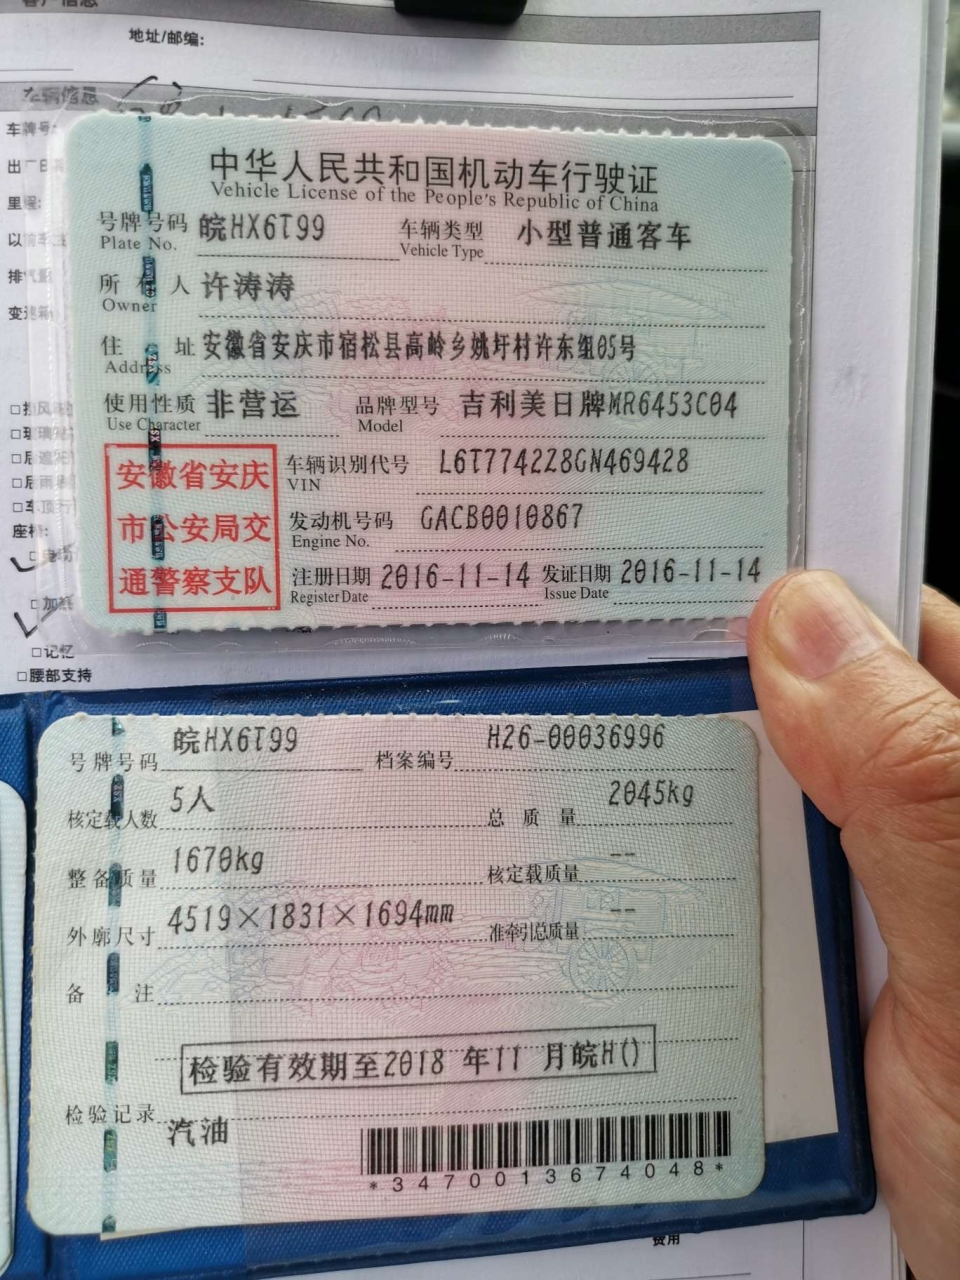 地址/邮编:
车辆信息
车牌号:
里程:
中华人民共和国机动车行驶证
Vehicle License of the People's Republic of China
号牌号码 皖HX6T99 车辆类型 小型普通客车
Plate No. Vehicle Type
所有人 许涛涛
Owner
住址 安徽省安庆市宿松县高岭乡姚圩村许东组05号
Address
使用性质 非营运 品牌型号 吉利美日牌MR6453C04
Use Character Model
安徽省安庆
市公安局交
通警察支队
车辆识别代号 L6T7742Z8GN469428
VIN
发动机号码 GACB0010867
Engine No.
注册日期 2016-11-14 发证日期 2016-11-14
Register Date Issue Date
座椅:
□加热
□记忆
□腰部支持
号牌号码 皖HX6T99 档案编号 H26-00036996
核定载人数 5人 总质量 2045kg
整备质量 1670kg 核定载质量 --
外廓尺寸 4519×1831×1694mm 准牵引总质量 --
备注
检验有效期至2018 年11 月皖H()
检验记录
汽油
*3470013674048*
费用